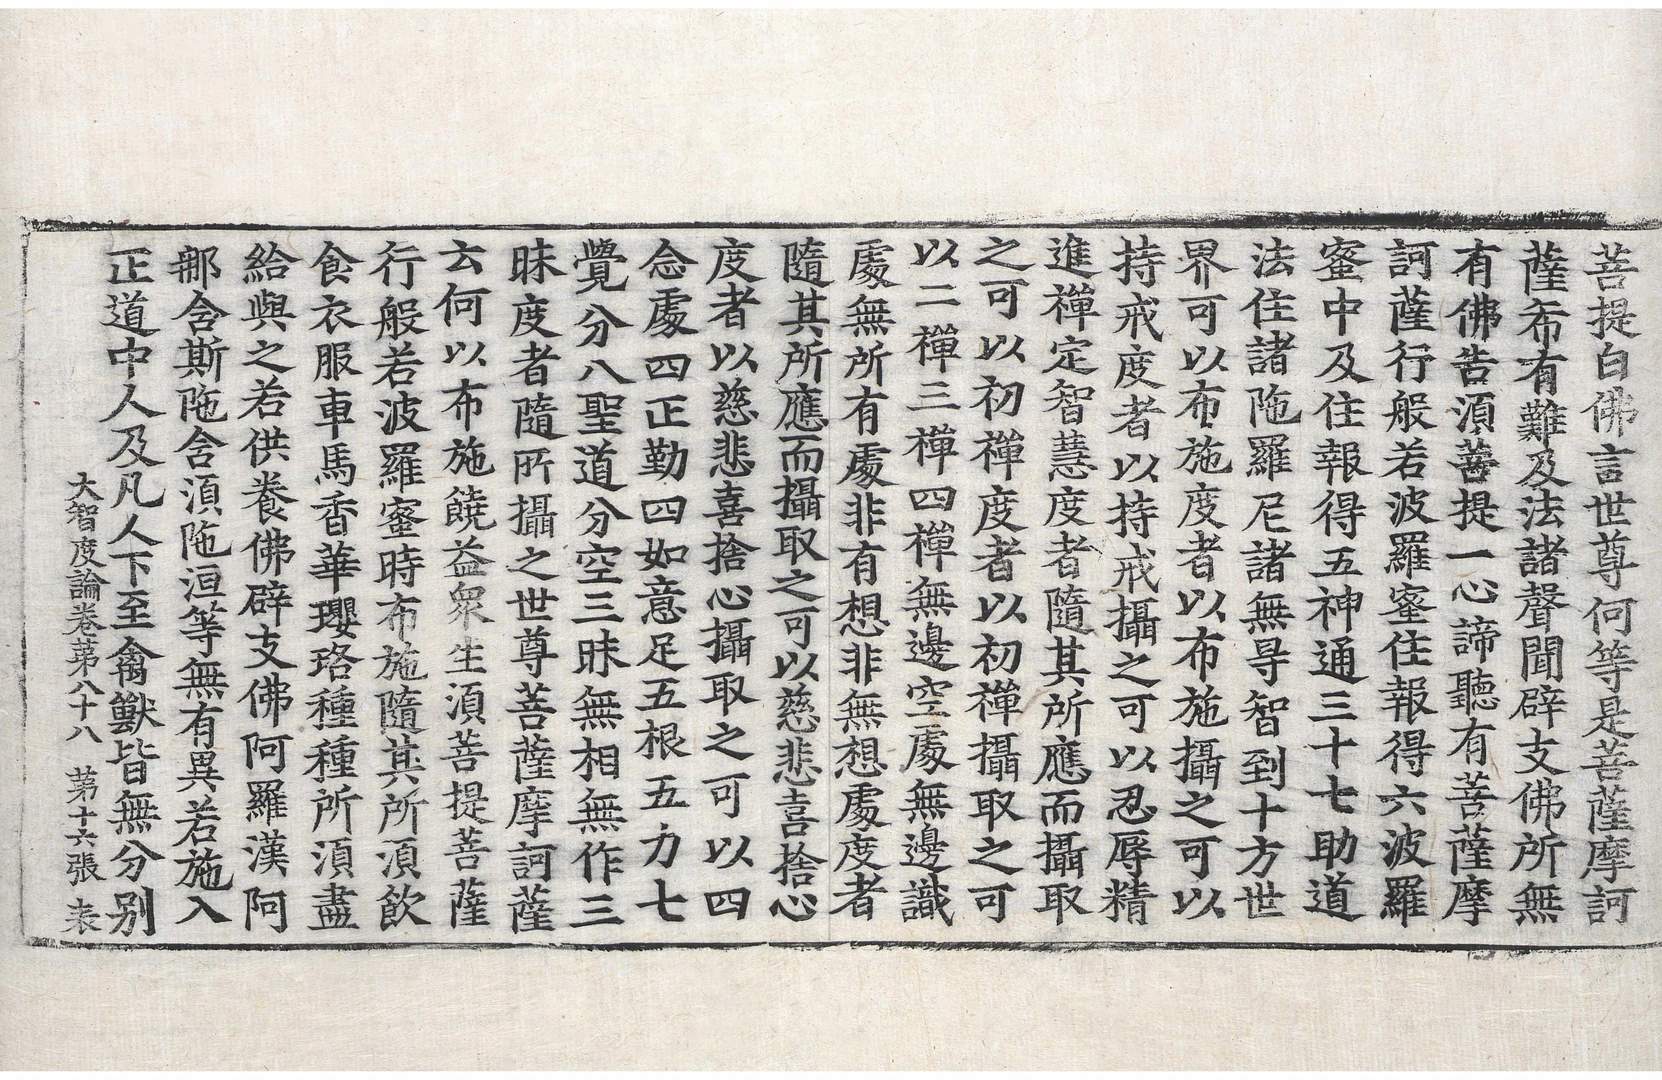 菩提白佛言世尊何等是菩薩摩訶
薩希有難及法諸聲聞辟支佛所無
有佛告須菩提一心諦聽有菩薩摩
訶薩行般若波羅蜜住報得六波羅
蜜中及住報得五神通三十七助道
法住諸陁羅尼諸無㝵智到十方世
界可以布施度者以布施攝之可以
持戒度者以持戒攝之可以忍辱精
進禪定智慧度者隨其所應而攝取
之可以初禪度者以初禪攝取之可
以二禪三禪四禪無邊空處無邊識
處無所有處非有想非無想處度者
隨其所應而攝取之可以慈悲喜捨心
度者以慈悲喜捨心攝取之可以四
念處四正勤四如意足五根五力七
覺分八聖道分空三昧無相無作三
昧度者隨所攝之世尊菩薩摩訶薩
云何以布施饒益衆生須菩提菩薩
行般若波羅蜜時布施隨其所須飮
食衣服車馬香華瓔珞種種所須盡
給與之若供養佛辟支佛阿羅漢阿
那含斯陁含須陁洹等無有異若施入
正道中人及凡人下至禽獸皆無分別
大智度論卷第八十八 第十六張 表